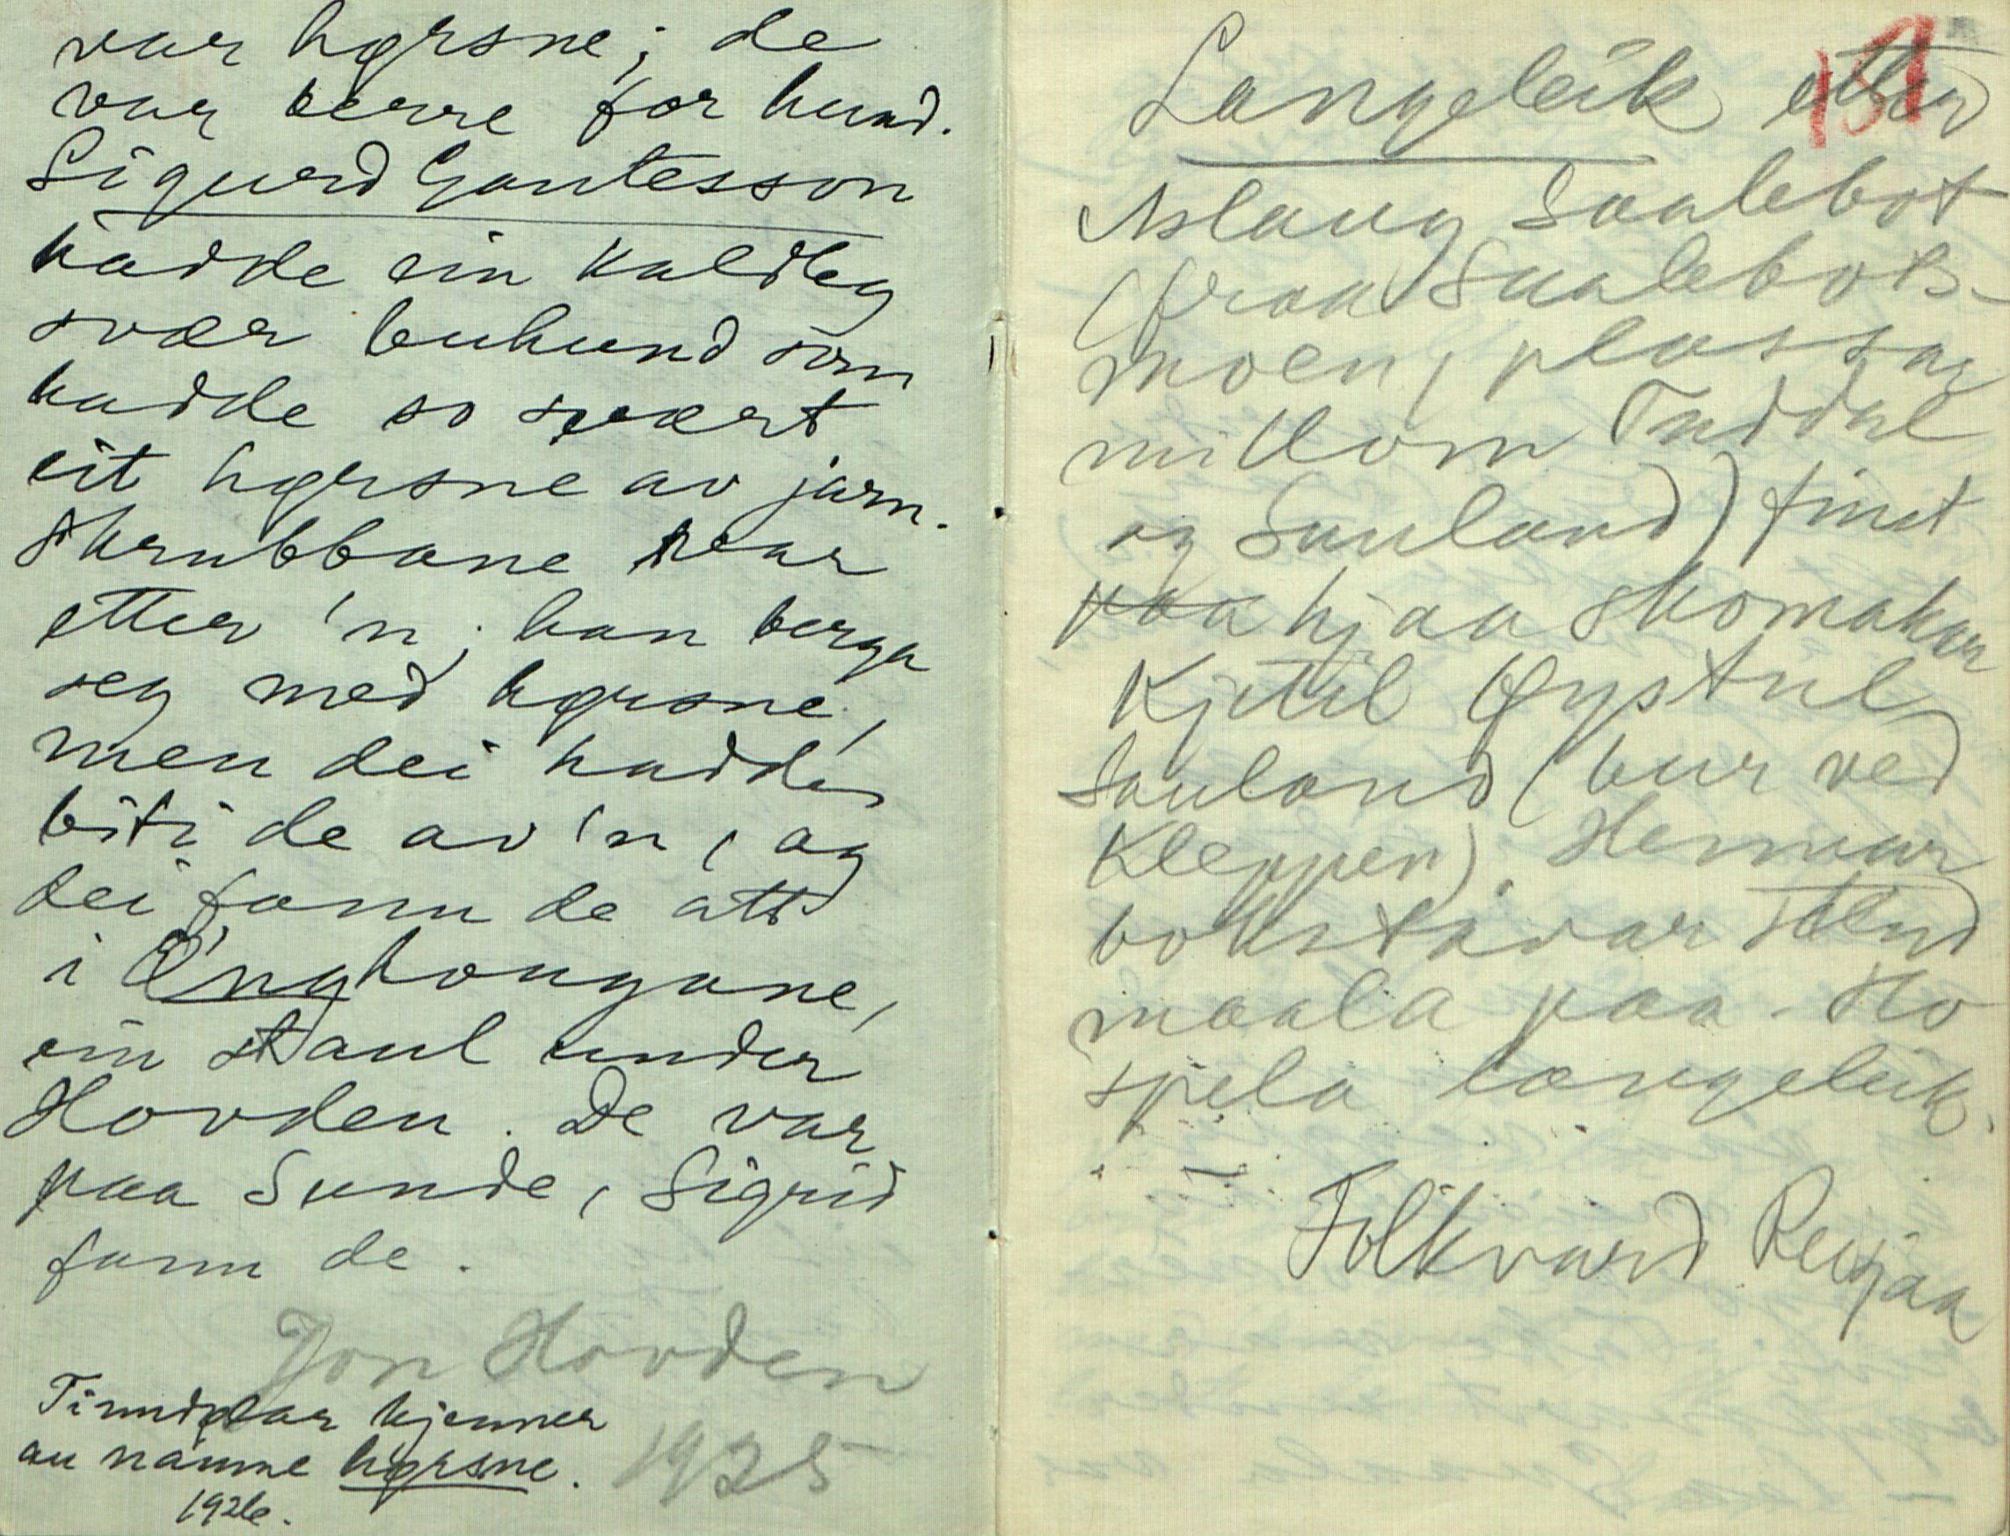 var hørsne; de
var berre for hund.
Sigurd Gautesson
hadde ein kaldleg
svær buhund som
hadde so svært
eit hørsne av jarn.
Skrubbane var
etter 'n; han berga
seg med hørsne,
men dei hadde
biti de av 'n, og
dei fann de att
i Ønghaugane,
ein staul under
Hovden. De var
paa Sunde, Sigrid
fann de.
Jon Hovden
1925
Tinndølar kjenner
au namne hørsne.
1926.
151
Langeleik etter
Aslaug Saalebot
(fraa Saalebots-
moen, plass
millom Tuddal
og Sauland) finst
paa hjaa skomakar
Kjetil Øystul,
Sauland (bur ved
Kleppen). Hennar
bokstavar stend
maala paa. Ho
spela langeleik.
Folkvard Reisjaa